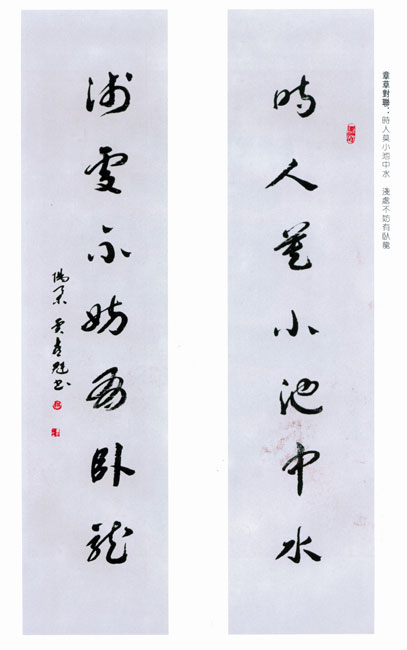 章草對聯：時人莫小池中水　淺處不妨有臥龍
時人莫小池中水
淺處不妨有臥龍